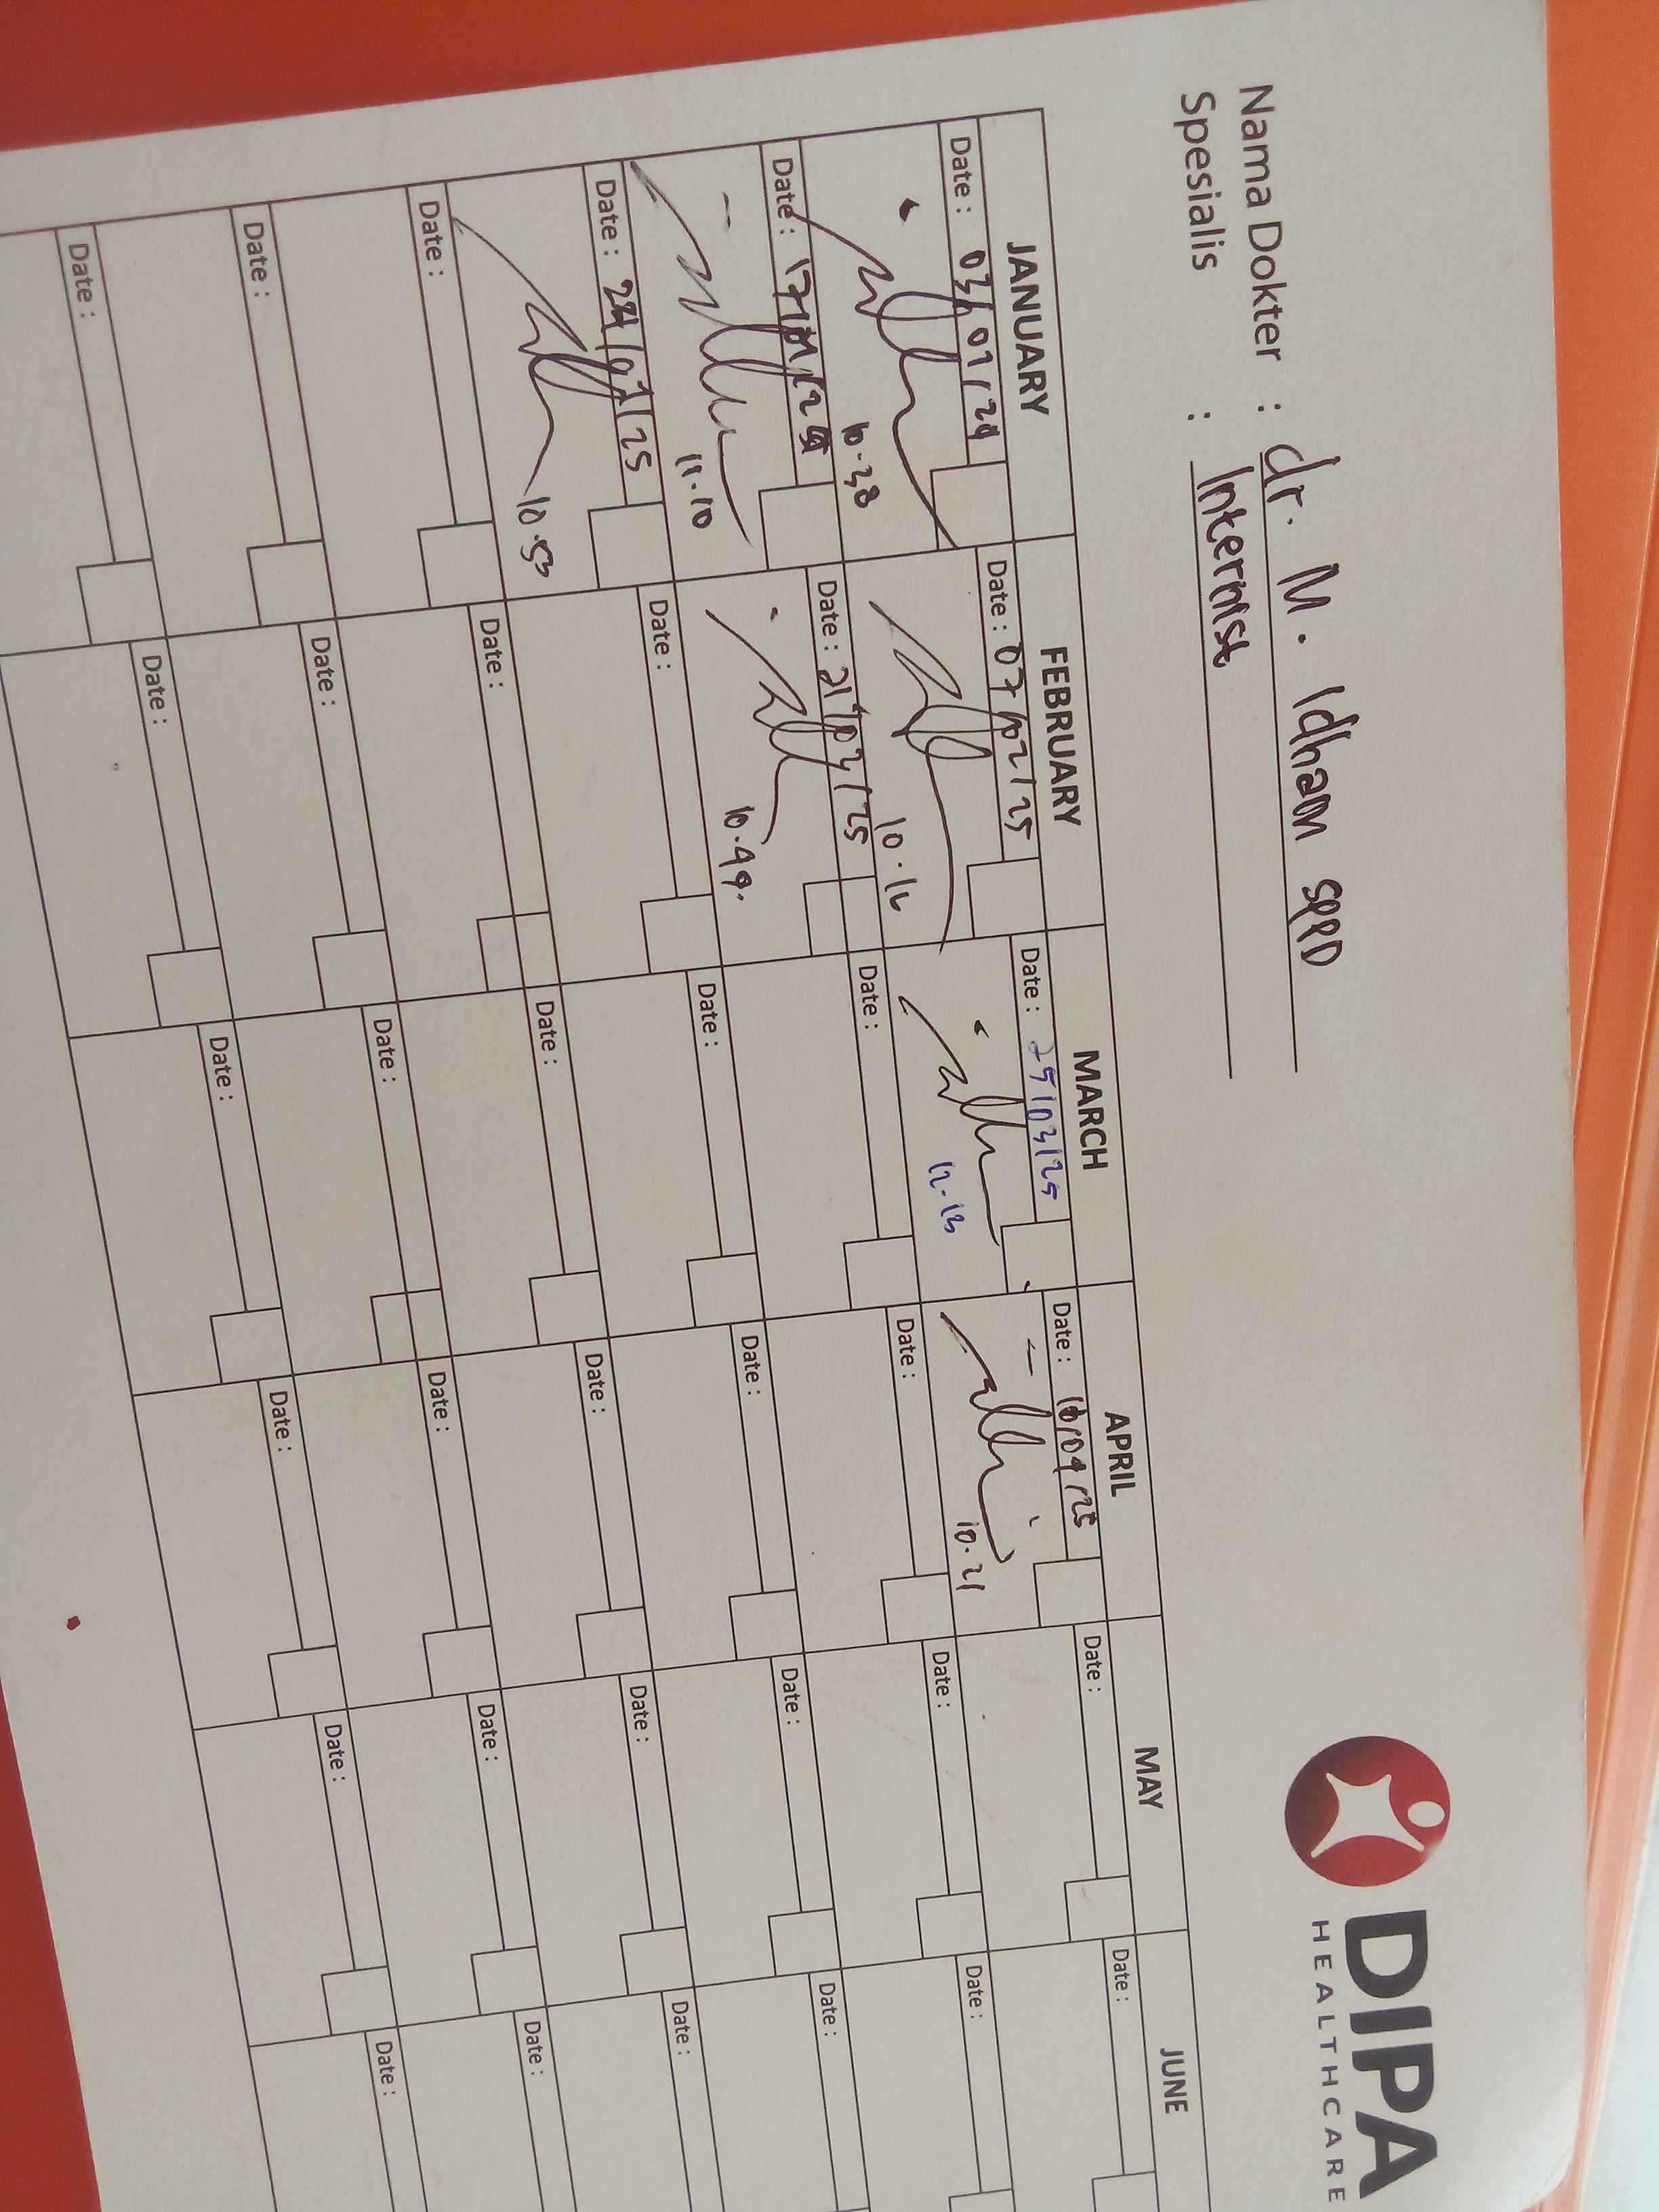 DIPA
HEALTHCARE
Nama Dokter : dr. M. Idham SPPD
Spesialis : Internist
JANUARY FEBRUARY MARCH APRIL MAY JUNE
Date : 03/01/24 Date : 07/02/25 Date : 25/03/25 Date : /04/25 Date : Date :
10.38 10.16 12.13 10.21
Date : 17/01/25 Date : 21/02/25 Date : Date : Date : Date :
11.10 10.49.
Date : 24/01/25 Date : Date : Date : Date : Date :
10.53
Date : Date : Date : Date : Date : Date :
Date : Date : Date : Date : Date : Date :
Date : Date : Date : Date : Date : Date :